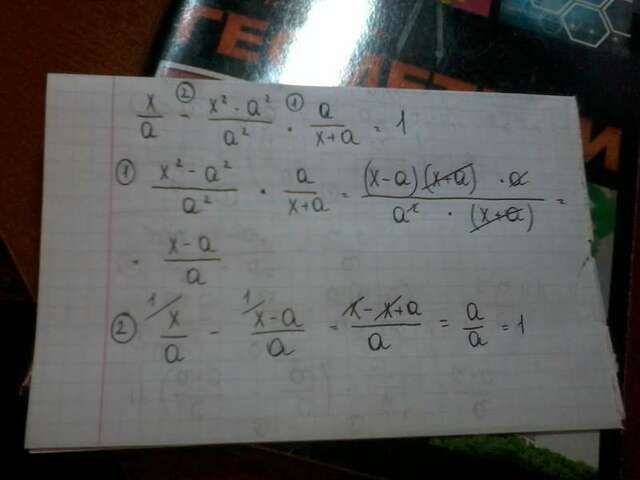 ГЕОМЕТРИИ
x/a - (x² - a²)/a² · a/(x+a) = 1
② ①
① (x² - a²)/a² · a/(x+a) = (x-a)(x+a) · a / a² · (x+a) =
= (x-a)/a
② x/a - (x-a)/a = (x-x+a)/a = a/a = 1
1 1